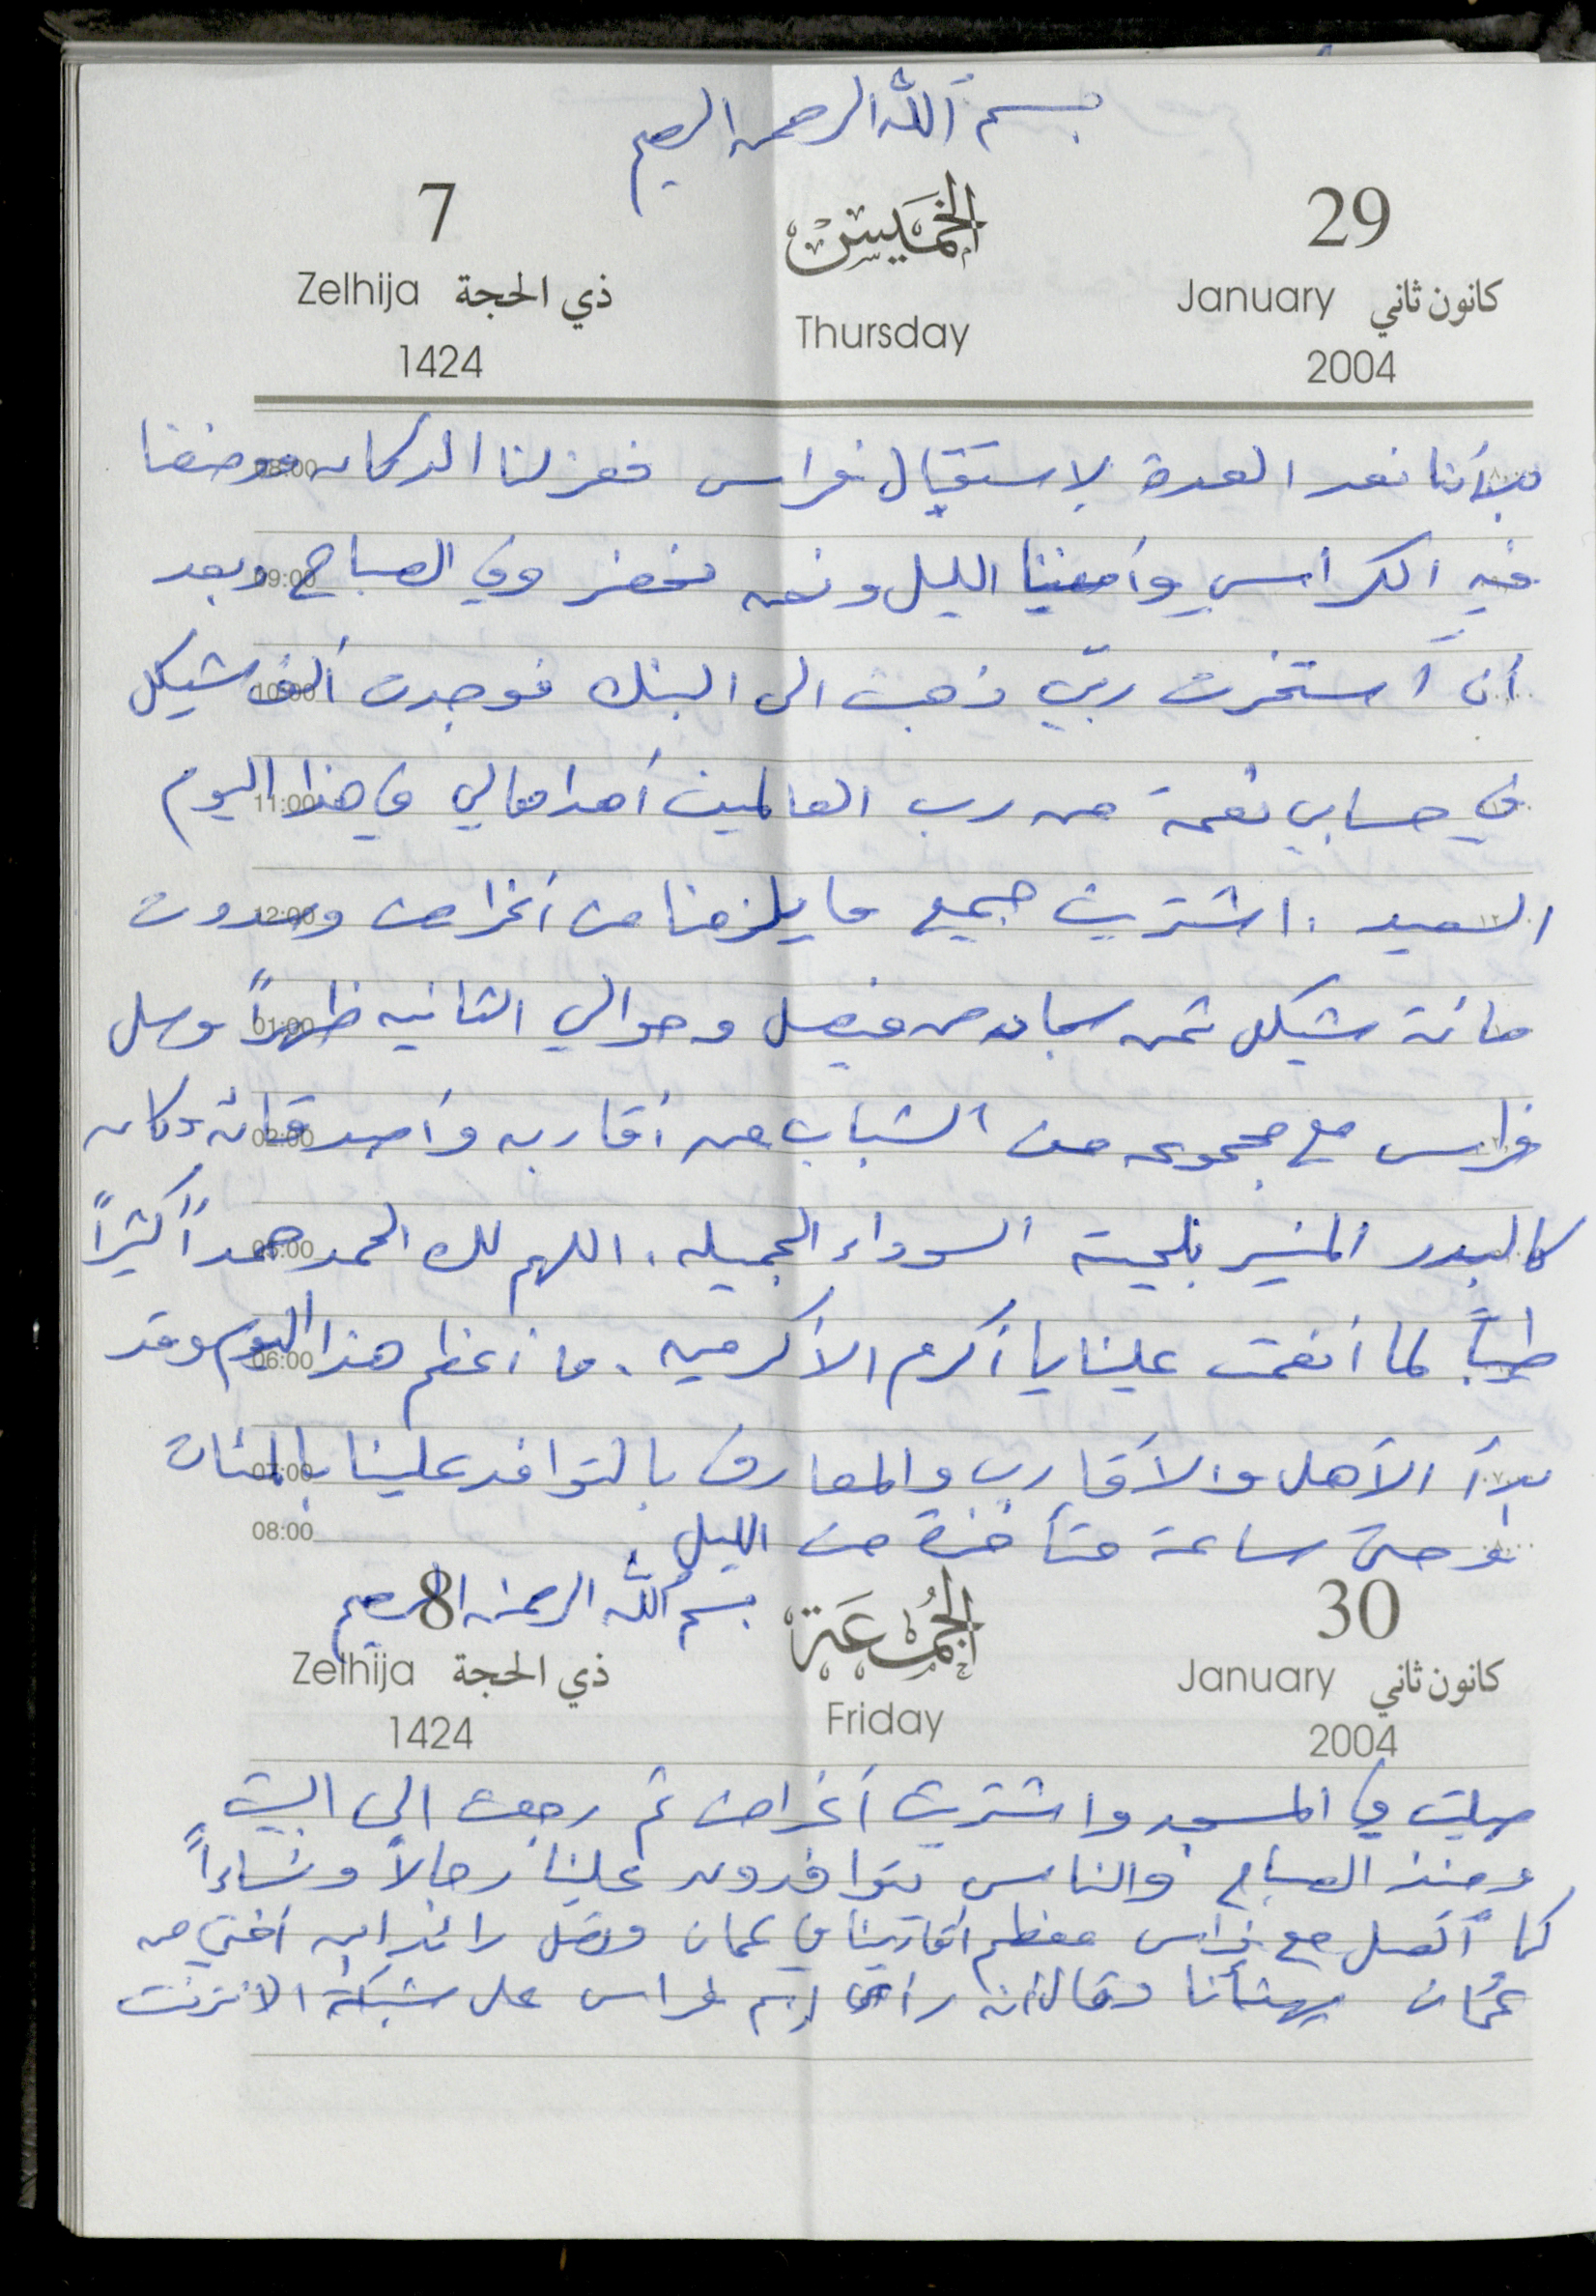 بسم الله الرحمن الرحيم
7 الخميس 29
Zelhija ذي الحجة Thursday January كانون ثاني
1424 2004
بدأنا نعد العدة لاستقبال فراس فعزلنا الدكان ووضعنا
08:00
فيه الكراسي وأمضينا الليل ونحن نحضر وفي الصباح وبعد
09:00
أن استخرت ربي ذهبت الى البنك فوجدت ألف شيكل
10:00
في حسابي نعمة من رب العالمين أهداها لي في هذا اليوم
11:00
السعيد . اشتريت جميع ما يلزمنا من أغراض وسددت
12:00
مائة شيكل ثمن سجاد من فيصل وحوالي الثانيه ظهراً وصل
01:00
فراس مع مجموعه من الشباب من أقاربه وأصدقائه وكان
02:00
كالبدر المنير بلحيته السوداء الجميله . اللهم لك الحمد حمداً كثيراً
05:00
طيباً لما أنعمت علينا يا أكرم الأكرمين . ما أعظم هذا اليوم وقد
06:00
بدأ الأهل والأقارب والمعارف بالتوافد علينا بالمئات
07:00
لوحتى ساعة متأخرة من الليل .
08:00
بسم الله الرحمن الرحيم
8 الجمعة 30
Zelhija ذي الحجة Friday January كانون ثاني
1424 2004
صليت في المسجد واشتريت أغراض ثم رجعت الى البيت
ومنذ الصباح والناس يتوافدون علينا رجالاً ونساءاً
كما أتصل مع فراس معظم أقاربنا في عمان وتصل رائد ابن أختي من
عمّان يهنأنا وقال انه رأى إسم فراس على شبكة الانترنت